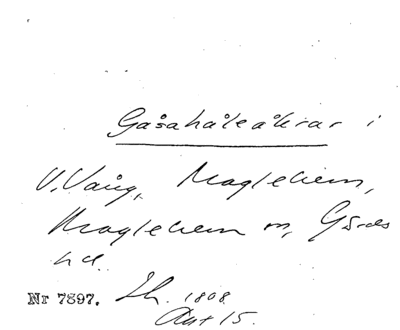 Gåsahåleåkrar i
V. Vång, Maglehem,
Maglehem sn, Gärds
hd.
Nr 7897. Sk. 1808
Akt 15.